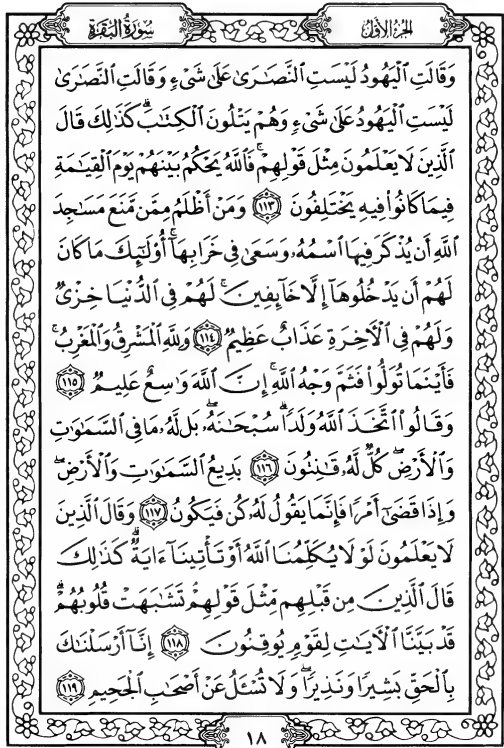 سُورَةُ البَقَرَةِ
الجُزءُ الأَوَّلُ
وَقَالَتِ ٱلْيَهُودُ لَيْسَتِ ٱلنَّصَـٰرَىٰ عَلَىٰ شَىْءٍ وَقَالَتِ ٱلنَّصَـٰرَىٰ
لَيْسَتِ ٱلْيَهُودُ عَلَىٰ شَىْءٍ وَهُمْ يَتْلُونَ ٱلْكِتَـٰبَ ۗ كَذَٰلِكَ قَالَ
ٱلَّذِينَ لَا يَعْلَمُونَ مِثْلَ قَوْلِهِمْ ۚ فَٱللَّهُ يَحْكُمُ بَيْنَهُمْ يَوْمَ ٱلْقِيَـٰمَةِ
فِيمَا كَانُوا۟ فِيهِ يَخْتَلِفُونَ ١١٣ وَمَنْ أَظْلَمُ مِمَّن مَّنَعَ مَسَـٰجِدَ
ٱللَّهِ أَن يُذْكَرَ فِيهَا ٱسْمُهُۥ وَسَعَىٰ فِى خَرَابِهَآ ۚ أُو۟لَـٰٓئِكَ مَا كَانَ
لَهُمْ أَن يَدْخُلُوهَآ إِلَّا خَآئِفِينَ ۚ لَهُمْ فِى ٱلدُّنْيَا خِزْىٌ
وَلَهُمْ فِى ٱلْـَٔاخِرَةِ عَذَابٌ عَظِيمٌ ١١٤ وَلِلَّهِ ٱلْمَشْرِقُ وَٱلْمَغْرِبُ ۚ
فَأَيْنَمَا تُوَلُّوا۟ فَثَمَّ وَجْهُ ٱللَّهِ ۚ إِنَّ ٱللَّهَ وَٰسِعٌ عَلِيمٌ ١١٥
وَقَالُوا۟ ٱتَّخَذَ ٱللَّهُ وَلَدًا ۗ سُبْحَـٰنَهُۥ ۖ بَل لَّهُۥ مَا فِى ٱلسَّمَـٰوَٰتِ
وَٱلْأَرْضِ ۖ كُلٌّ لَّهُۥ قَـٰنِتُونَ ١١٦ بَدِيعُ ٱلسَّمَـٰوَٰتِ وَٱلْأَرْضِ ۖ
وَإِذَا قَضَىٰٓ أَمْرًا فَإِنَّمَا يَقُولُ لَهُۥ كُن فَيَكُونُ ١١٧ وَقَالَ ٱلَّذِينَ
لَا يَعْلَمُونَ لَوْلَا يُكَلِّمُنَا ٱللَّهُ أَوْ تَأْتِينَآ ءَايَةٌ ۗ كَذَٰلِكَ
قَالَ ٱلَّذِينَ مِن قَبْلِهِم مِّثْلَ قَوْلِهِمْ ۘ تَشَـٰبَهَتْ قُلُوبُهُمْ ۗ
قَدْ بَيَّنَّا ٱلْـَٔايَـٰتِ لِقَوْمٍ يُوقِنُونَ ١١٨ إِنَّآ أَرْسَلْنَـٰكَ
بِٱلْحَقِّ بَشِيرًا وَنَذِيرًا ۖ وَلَا تُسْـَٔلُ عَنْ أَصْحَـٰبِ ٱلْجَحِيمِ ١١٩
١٨